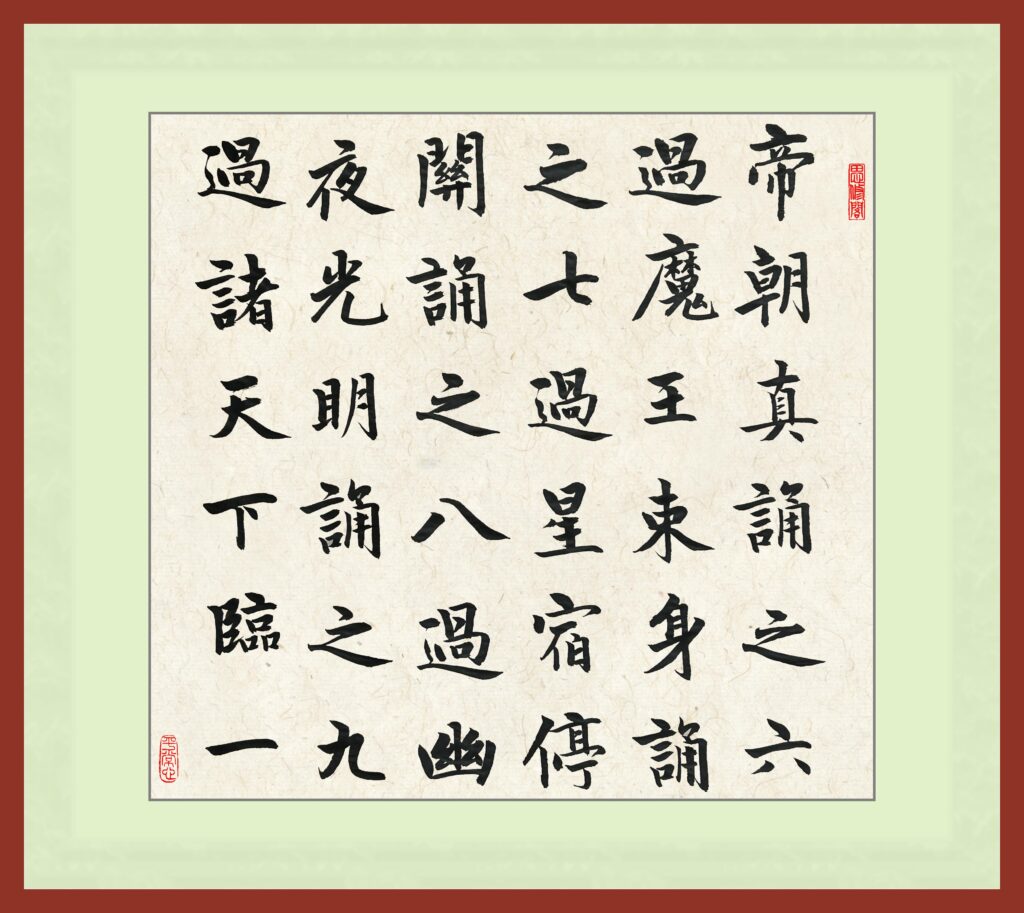 帝朝真誦之六
過魔王束身誦
之七過星宿停
關誦之八過幽
夜光明誦之九
過諸天下臨一
平常心